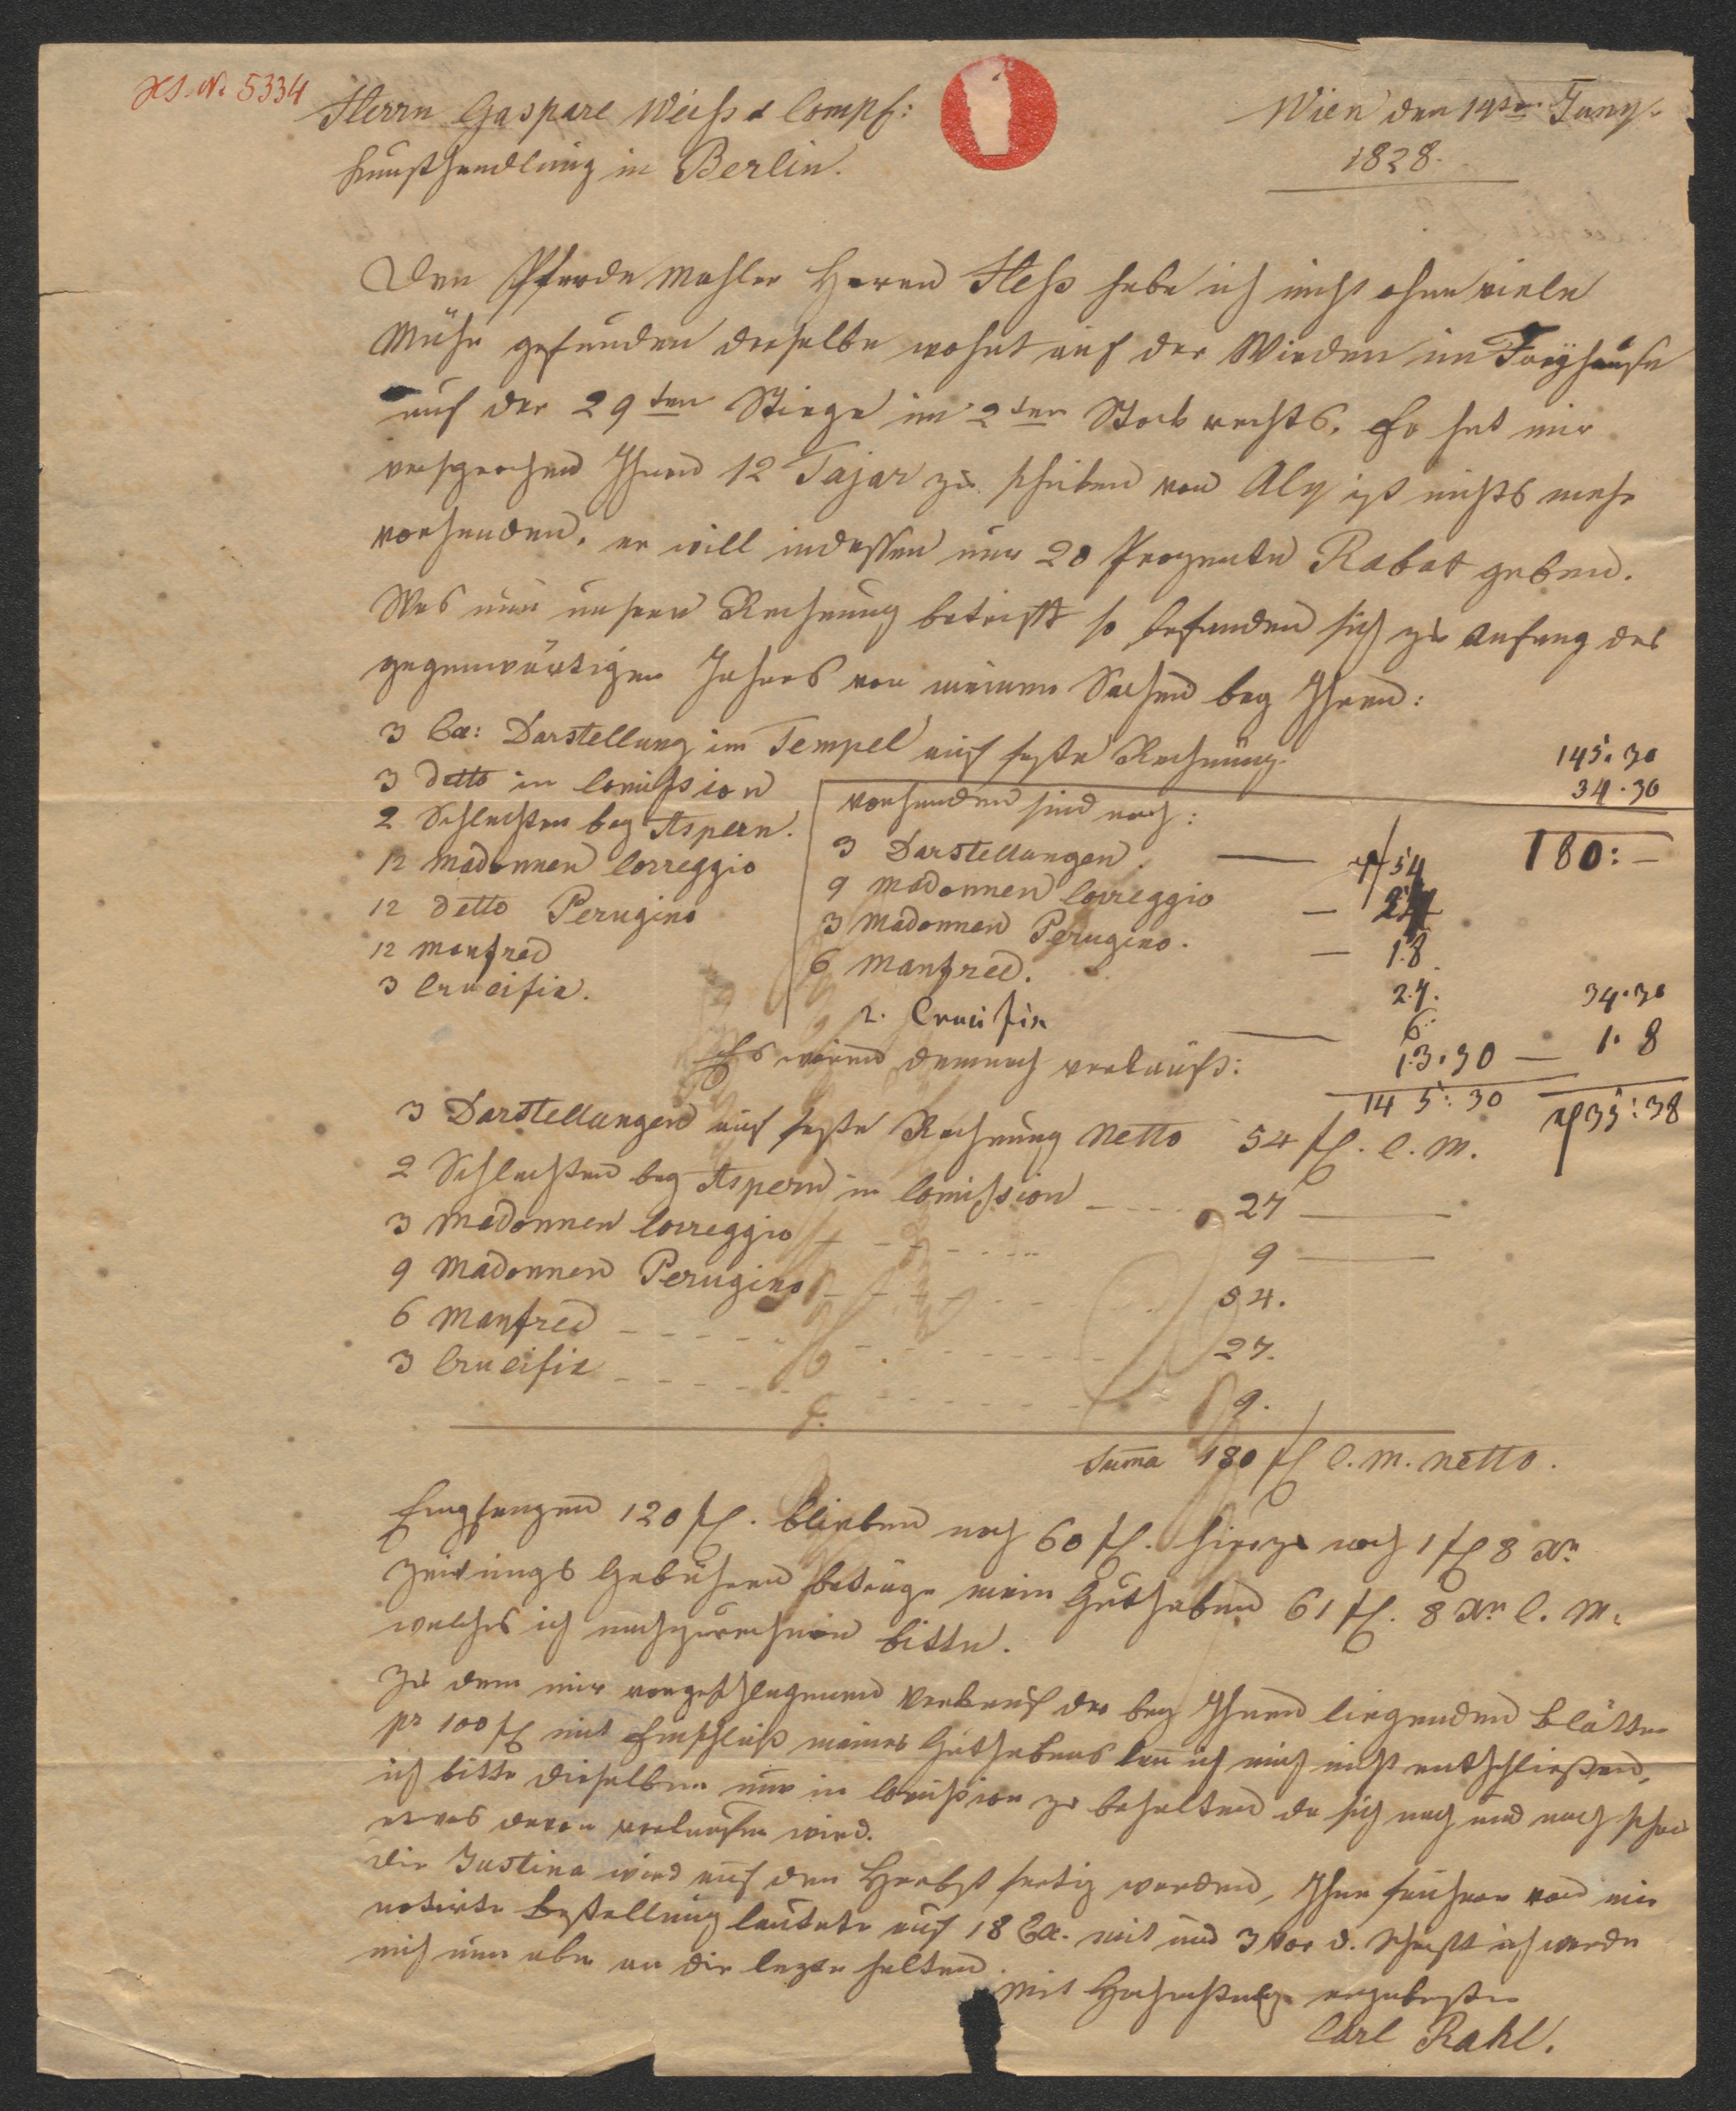 HS. Nr 5334
Herrn Gaspare Weiß & Compf:
Kunsthandlung in Berlin.
Wien den 14ten Juny.
1828.
Den Pferde Mahler Herrn Heß habe ich nicht ohne viele
Mühe gefunden derselbe wohnt auf der Wieden im Freyhause
auf der 29ten Stiege im 2ten Stock rechts. Er hat mir
versprochen Ihnen 12 Tajar zu schicken von Aly ist nichts mehr
vorhanden, er will indessen nur 20 Prozente Rabat geben.
Was nun unsere Rechnung betrifft so befanden sich zu Anfang des
gegenwärtigen Jahres von meinen Sachen bey Ihnen:
3 Ex: Darstellung im Tempel auf feste Rechnung.
3 detto in Comission
2 Schlachten bey Aspern.
12 Madonnen Correggio
12 detto Perugino
12 Manfred
3 Crucifix.
vorhanden sind noch:
3 Darstellungen. — f 54
9 Madonnen Correggio — 27
3 Madonnen Perugino. — 18.
6 Manfred. 27.
2. Crucifix — 6.
13.30 —
145:30
145.30
34.30
180:—
34.30
1.8
f 35:38
Es wären demnach verkauft:
3 Darstellungen auf feste Rechnung Netto 54 fl. C. M.
2 Schlachten bey Aspern in Comission 27 —
3 Madonnen Correggio 9 —
9 Madonnen Perugino 54.
6 Manfred 27.
3 Crucifix 9.
Suma 180 fl C. M. netto.
Empfangen 120 fl. blieben noch 60 fl. hierzu noch 1 fl 8 Xr
Zeitungs Gebühren betrüge mein Guthaben 61 fl. 8 Xr C. M.
welches ich nachzurechnen bitte.
Zu dem mir vorgeschlagenen Verkauf der bey Ihnen liegenden Blätter
pr 100 fl mit Einschluß meines Guthabens kan ich mich nicht entschließen,
ich bitte dieselben nur in Comission zu behalten da sich nach und nach schon
etwas davon verkaufen wird.
Die Justina wird auf den Herbst fertig werden, Ihre frühere von mir
notirte Bestellung lautete auf 18 Ex. mit und 3 vor d. Schrift ich werde
mich nun aber an die lezte halten.
Mit Hochachtung ergebenster
Carl Rahl.